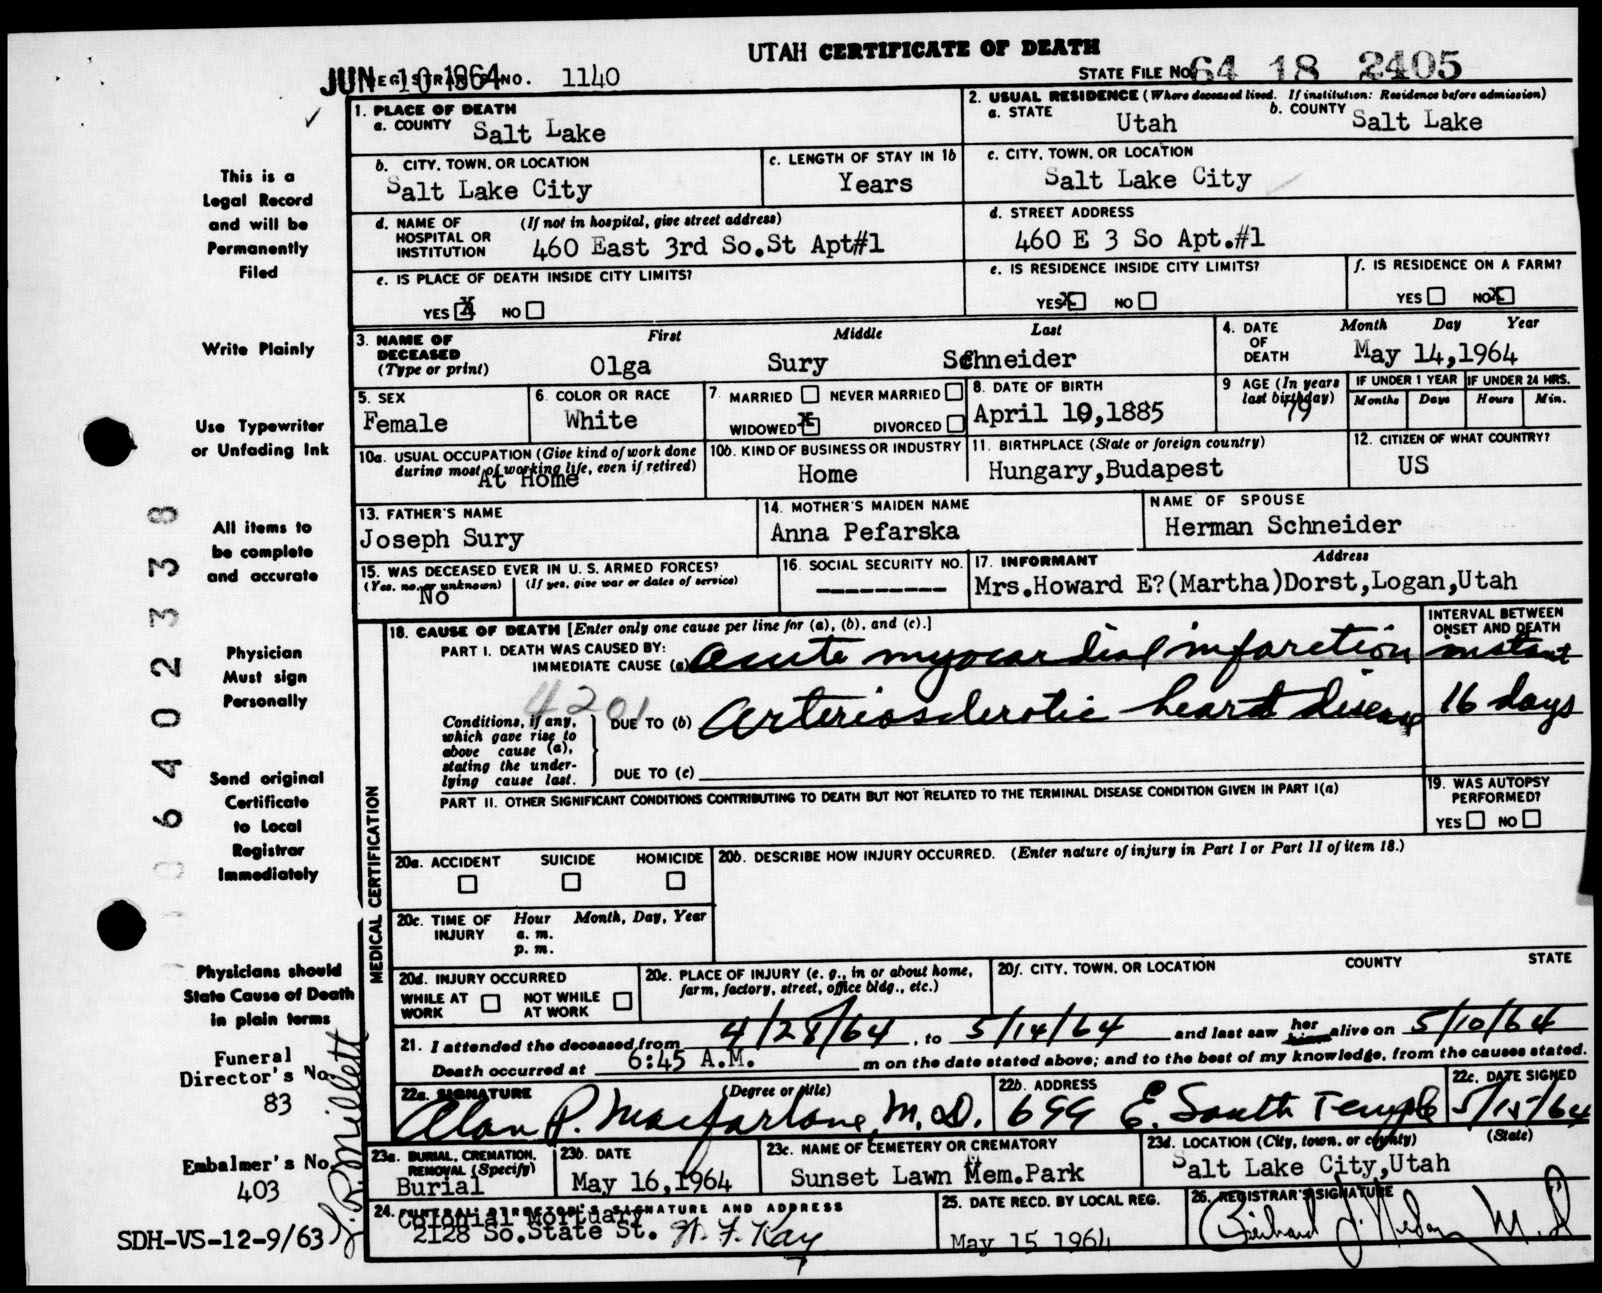 UTAH CERTIFICATE OF DEATH
JUN 10 1964 REGISTRAR'S NO. 1140
STATE FILE NO. 64 18 2405
1. PLACE OF DEATH
a. COUNTY Salt Lake
2. USUAL RESIDENCE (Where deceased lived. If institution: Residence before admission)
a. STATE Utah b. COUNTY Salt Lake
b. CITY, TOWN, OR LOCATION Salt Lake City
c. LENGTH OF STAY IN 1b Years
c. CITY, TOWN, OR LOCATION Salt Lake City
d. NAME OF HOSPITAL OR INSTITUTION (If not in hospital, give street address)
460 East 3rd So.St Apt#1
d. STREET ADDRESS
460 E 3 So Apt.#1
e. IS PLACE OF DEATH INSIDE CITY LIMITS?
YES X NO
e. IS RESIDENCE INSIDE CITY LIMITS?
YES X NO
f. IS RESIDENCE ON A FARM?
YES NO X
3. NAME OF DECEASED (Type or print)
First Middle Last
Olga Sury Schneider
4. DATE OF DEATH Month Day Year
May 14,1964
5. SEX Female
6. COLOR OR RACE White
7. MARRIED NEVER MARRIED
WIDOWED X DIVORCED
8. DATE OF BIRTH
April 10,1885
9 AGE (In years last birthday) 79
IF UNDER 1 YEAR Months Days
IF UNDER 24 HRS. Hours Min.
10a. USUAL OCCUPATION (Give kind of work done during most of working life, even if retired)
At Home
10b. KIND OF BUSINESS OR INDUSTRY
Home
11. BIRTHPLACE (State or foreign country)
Hungary,Budapest
12. CITIZEN OF WHAT COUNTRY?
US
13. FATHER'S NAME
Joseph Sury
14. MOTHER'S MAIDEN NAME
Anna Pefarska
NAME OF SPOUSE
Herman Schneider
15. WAS DECEASED EVER IN U. S. ARMED FORCES?
(Yes, no, or unknown) (If yes, give war or dates of service)
No
16. SOCIAL SECURITY NO.
---------
17. INFORMANT Address
Mrs.Howard E?(Martha)Dorst,Logan,Utah
MEDICAL CERTIFICATION
18. CAUSE OF DEATH [Enter only one cause per line for (a), (b), and (c).]
INTERVAL BETWEEN ONSET AND DEATH
PART I. DEATH WAS CAUSED BY:
IMMEDIATE CAUSE (a) Acute myocardial infarction instant
4201
Conditions, if any, which gave rise to above cause (a), stating the underlying cause last.
DUE TO (b) Arteriosclerotic heart disease 16 days
DUE TO (c)
PART II. OTHER SIGNIFICANT CONDITIONS CONTRIBUTING TO DEATH BUT NOT RELATED TO THE TERMINAL DISEASE CONDITION GIVEN IN PART I(a)
19. WAS AUTOPSY PERFORMED?
YES NO
20a. ACCIDENT SUICIDE HOMICIDE
20b. DESCRIBE HOW INJURY OCCURRED. (Enter nature of injury in Part I or Part II of item 18.)
20c. TIME OF INJURY Hour Month, Day, Year
a. m.
p. m.
20d. INJURY OCCURRED
WHILE AT WORK NOT WHILE AT WORK
20e. PLACE OF INJURY (e. g., in or about home, farm, factory, street, office bldg., etc.)
20f. CITY, TOWN, OR LOCATION COUNTY STATE
21. I attended the deceased from 4/28/64, to 5/14/64 and last saw her him alive on 5/10/64
Death occurred at 6:45 A.M. m on the date stated above; and to the best of my knowledge, from the causes stated.
22a. SIGNATURE (Degree or title)
Alan P. Macfarlane, M.D.
22b. ADDRESS
699 E. South Temple
22c. DATE SIGNED
5/15/64
23a. BURIAL, CREMATION, REMOVAL (Specify)
Burial
23b. DATE
May 16,1964
23c. NAME OF CEMETERY OR CREMATORY
Sunset Lawn Mem.Park
23d. LOCATION (City, town, or county) (State)
Salt Lake City,Utah
24. FUNERAL DIRECTOR'S SIGNATURE AND ADDRESS
Colonial Mortuary
2128 So.State St. W. F. Kay
25. DATE RECD. BY LOCAL REG.
May 15 1964
26. REGISTRAR'S SIGNATURE
M.D
This is a
Legal Record
and will be
Permanently
Filed
Write Plainly
Use Typewriter
or Unfading Ink
All items to
be complete
and accurate
Physician
Must sign
Personally
Send original
Certificate
to Local
Registrar
Immediately
Physicians should
State Cause of Death
in plain terms
Funeral
Director's No.
83
Embalmer's No.
403
Millett
SDH-VS-12-9/63
6402338